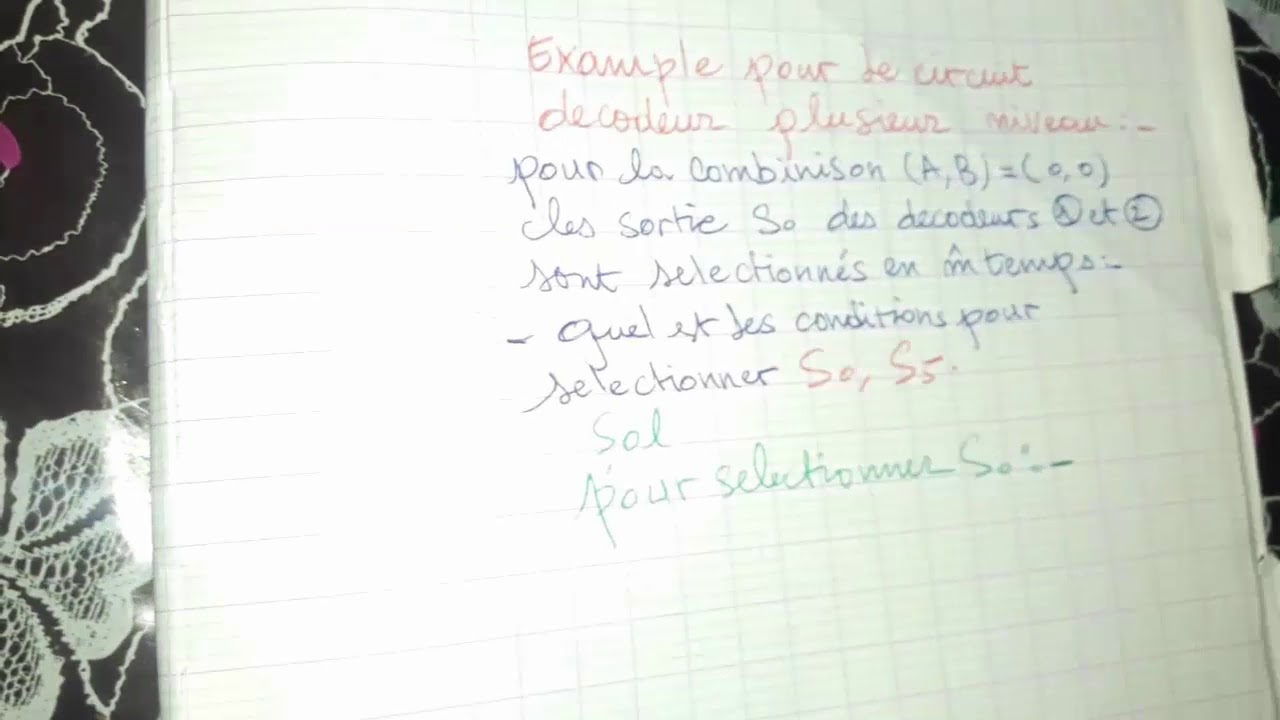 Example pour le circuit
decodeur plusieur niveau :-
pour la combinison (A,B)=(0,0)
les sortie S0 des decodeurs ① et ②
sont selectionnés en m̂ temps:-
- Quel est les conditions pour
selectionner S0, S5.
Sol
pour selectionner S0:-